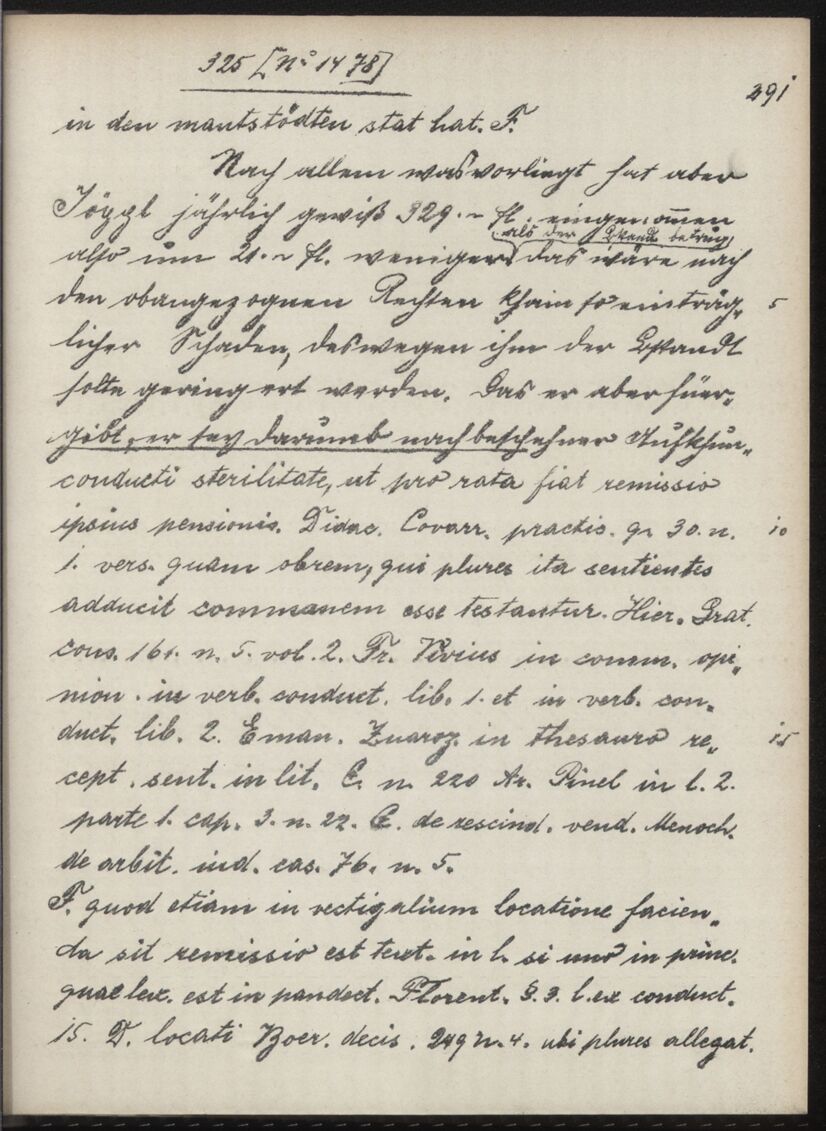 325 [No 1478]
391
in den mautstödten stat hat. F.
Nach allem was vorliegt hat aber
Jöggl jährlich gewiß 329.– fl. eingenomen
als der Bstand betrug
also um 21.– fl. weniger das wäre nach
den obangezognen Rechten khain so einträg„
5
licher Schaden, deswegen ihm der Bstandt
solte geringert werden. Das er aber füer„
gibt, er sey darumb nach beschehner Aufkhün„
conducti sterilitate, ut pro rata fiat remissio
ipsius pensionis. Didac. Covarr. practic. q. 30. n.
10
1. vers. quam obrem, qui plures ita sentientes
adducit commanem esse testantur. Hier. Grat.
cons. 161. n. 5. vol. 2. Fr. Vivius in comm. opi„
nion. in verb. conduct. lib. 1. et in verb. con„
duct. lib. 2. Eman. Zuaroz. in thesauro re„
15
cept. sent. in lit. C. n. 220 Ar. Pinel in l. 2.
parte 1. cap. 3. n. 22. C. de rescind. vend. Menoch.
de arbit. iud. cas. 76. n. 5.
F. quod etiam in vectigalium locatione facien„
da sit remissio est text. in l. si uno in princ.
quae lex. est in pandect. Florent. §. 3. l. ex conduct.
15. D. locati Boer. decis. 249 n. 4. ubi plures allegat.